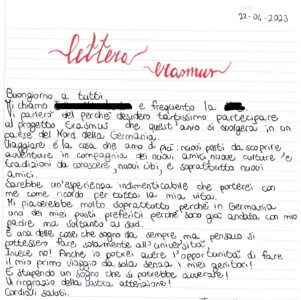 22-04-2023
lettera
erasmus
Buongiorno a tutti.
Mi chiamo e frequento la
Vi parlerò del perché desidero tantissimo partecipare
al progetto Erasmus che quest'anno si svolgerà in un
paese del Nord della Germania.
Viaggiare è la cosa che amo di più: nuovi posti da scoprire,
avventure in compagnia dei nuovi amici nuove culture e
tradizioni da conoscere, nuovi cibi, e soprattutto nuovi
amici.
Sarebbe un'esperienza indimenticabile che porterei con
me come ricordo per tutta la mia vita.
Mi piacerebbe molto soprattutto perché in Germania
uno dei miei posti preferiti perché sono già andata con mio
padre ma soltanto al sud.
È una delle cose che sogno da sempre, ma pensavo si
potessero fare solamente all'università.
Invece no! Anche io potrei avere l'opportunità di fare
il mio primo viaggio da sola senza i miei genitori!
È stupendo un sogno che si potrebbe avverare!
Vi ringrazio della attenzione!
Cordiali saluti.